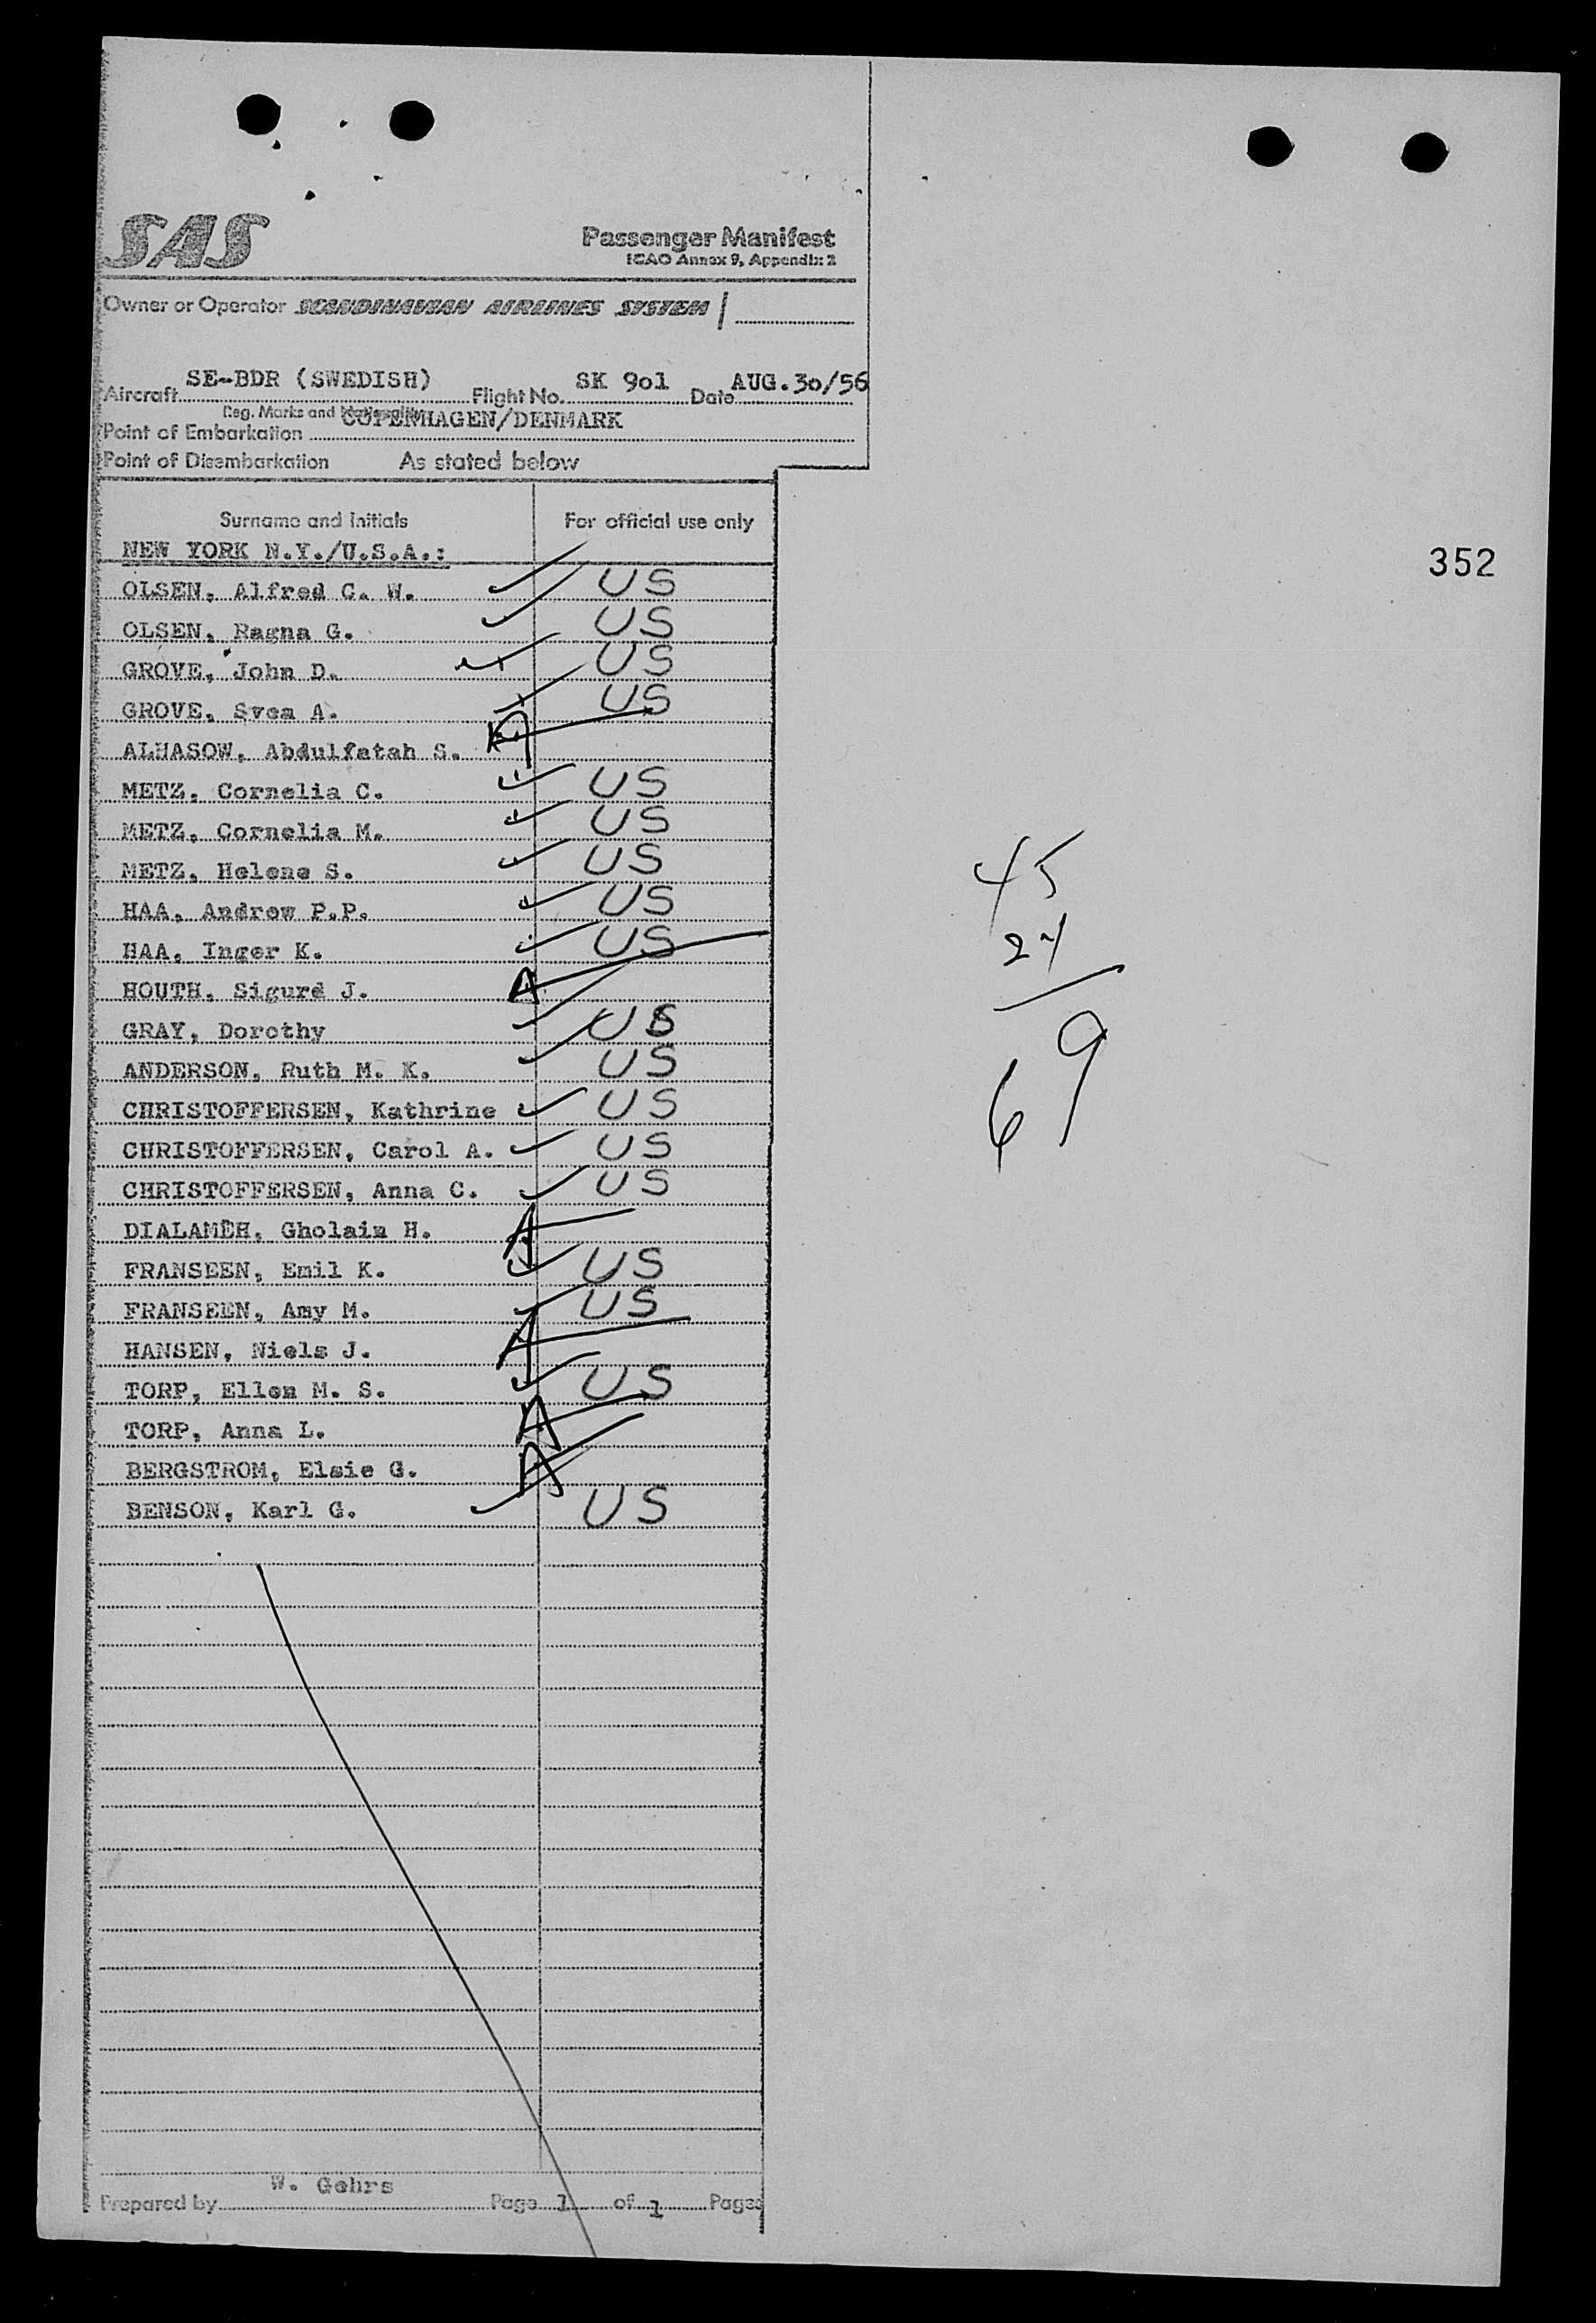 SAS
Passenger Manifest
ICAO Annex 9, Appendix 2
Owner or Operator SCANDINAVIAN AIRLINES SYSTEM
Aircraft SE-BDR (SWEDISH) Flight No. SK 901 Date AUG.30/56
Reg. Marks and Nationality
Point of Embarkation COPENHAGEN/DENMARK
Point of Disembarkation As stated below
Surname and initials For official use only
NEW YORK N.Y./U.S.A.:
352
OLSEN, Alfred C. W. US
OLSEN, Ragna G. US
GROVE, John D. US
GROVE, Svea A. US
ALHASOW, Abdulfatah S. A
METZ, Cornelia C. US
METZ, Cornelia M. US
METZ, Helene S. US
HAA, Andrew P.P. US
HAA, Inger K. US
HOUTH, Sigurd J. A
GRAY, Dorothy US
ANDERSON, Ruth M. K. US
CHRISTOFFERSEN, Kathrine US
CHRISTOFFERSEN, Carol A. US
CHRISTOFFERSEN, Anna C. US
DIALAMEH, Gholaim H. A
FRANSEEN, Emil K. US
FRANSEEN, Amy M. US
HANSEN, Niels J. A
TORP, Ellen M. S. US
TORP, Anna L. A
BERGSTROM, Elsie G. A
BENSON, Karl G. US
45
24
69
Prepared by W. Gehrs Page 1 of 1 Pages